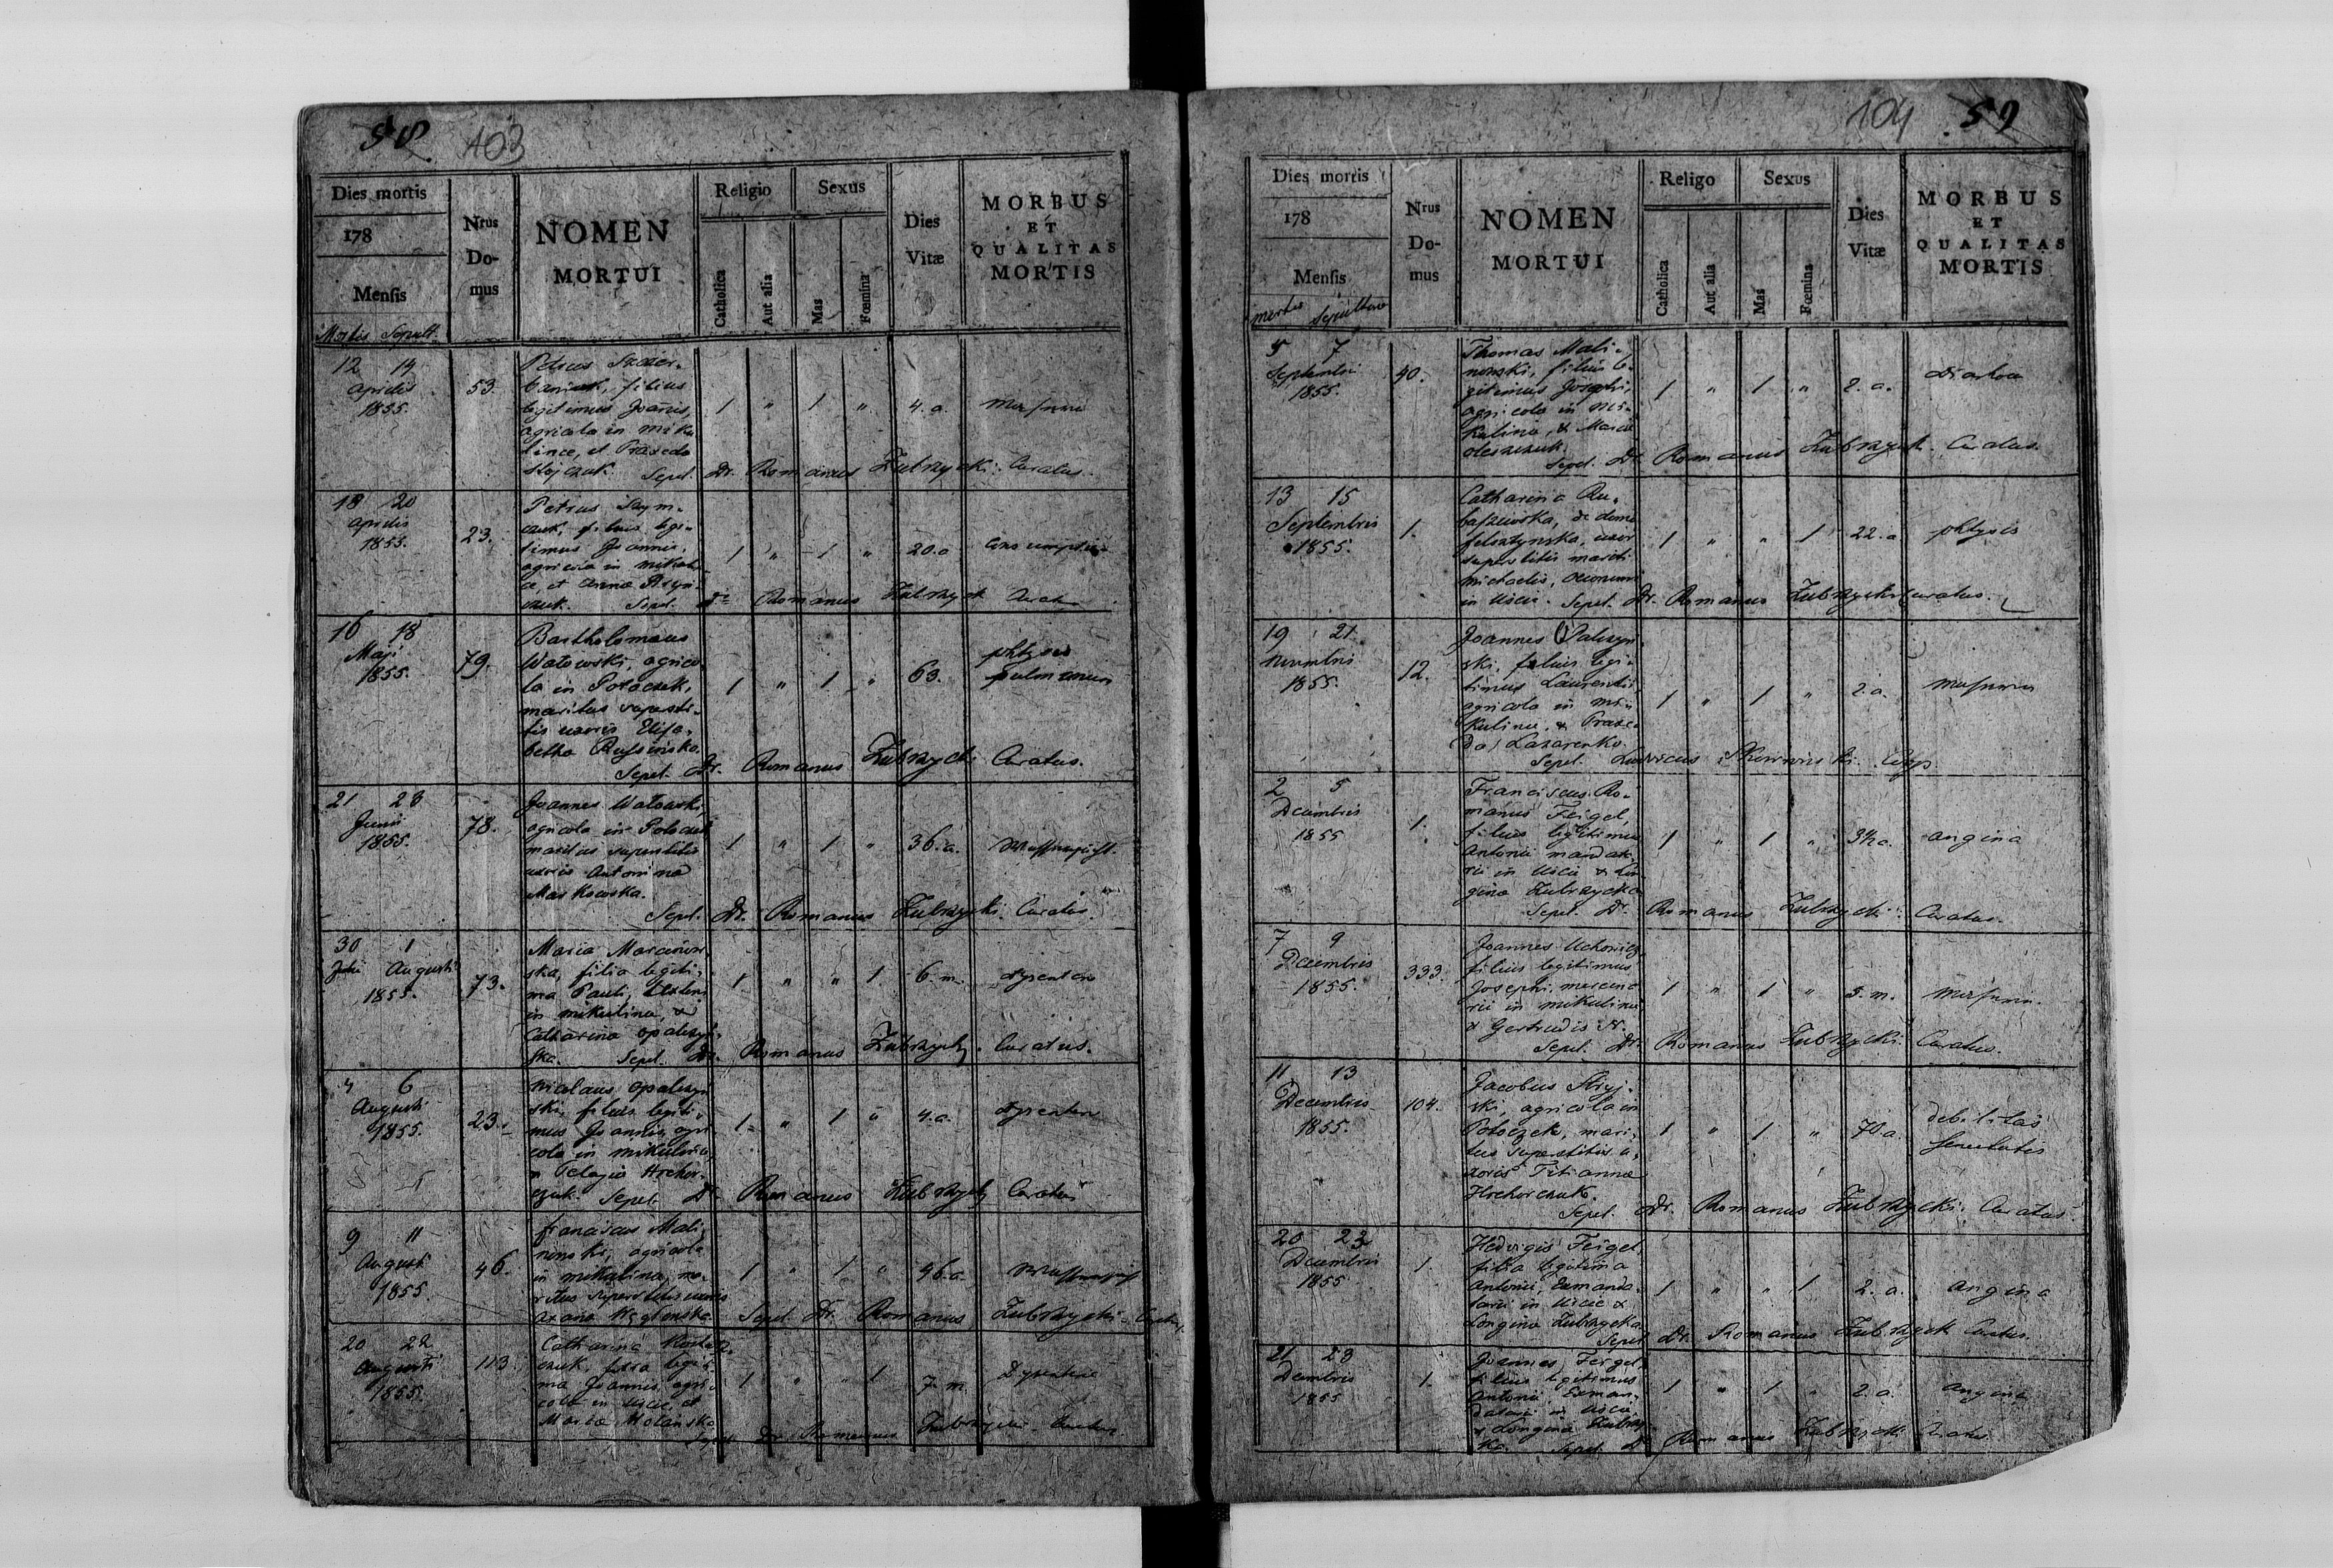 58 103
Dies mortis
178
Mensis
Mortis Sepult.
Nrus
Do-
mus
NOMEN
MORTUI
Religio
Catholica
Aut alia
Sexus
Mas
Fœmina
Dies
Vitæ
MORBUS
ET
QUALITAS
MORTIS
12 14
Aprilis
1855.
53.
Petrus
filius
legitimus Joannis,
agricola in Miku
lince, et Praxeda
Sepel. Dr. Romanus Zubrzycki Curatus.
1 " 1 " 4. a.
18 20
Aprilis
1855.
23.
Petrus Szym-
czuk, filius legi-
timus Joannis,
agricola in
et Anna
czuk. Sepel. Dr Romanus Zubrzycki Curatus
1 " 1 " 20. a
16 18
Maji
1855.
79.
Bartholomaeus
Watowski, agrico
la in Potoczek,
maritus supersti-
tis uxoris Elisa-
betha
Sepel. Dr. Romanus Zubrzycki Curatus.
1 " 1 " 63.
21 23
Junii
1855.
78.
Joannes Watowski,
agricola in Potoczek
maritus superstitis
uxoris Antonina
Maskowska.
Sepel. Dr. Romanus Zubrzycki. Curatus
1 " 1 " 36. a.
30 1
Julii Augusti
1855.
73.
Maria Marcinow
ska, filia legiti-
ma Pauli,
in Mikulince, &
Catharina Opalszyń-
ska. Sepel. Dr. Romanus Zubrzycki. Curatus.
1 " " 1 6. m.
4 6
Augusti
1855.
23.
Nicolaus Opalszyń
ski, filius legiti-
mus Joannis, agri
cola in Mikulince,
& Pelagia Hrehor-
czuk. Sepel. Dr Romanus Zubrzycki Curatus
1 " 1 " 4. a.
9 11
Augusti
1855.
46.
Franciscus Mali-
nowski, agricola
in Mikulince, ma-
ritus superstitis uxoris
Sepel. Dr. Romanus Zubrzycki
1 " 1 " 46. a.
20 22
Augusti
1855.
113.
Catharina
czuk, filia legiti
ma Joannis, agri-
cola in Uscie, et
Maria
Sepel. Dr. Romanus Zubrzycki Curatus
1 " " 1 7. m.
104 59
Dies mortis
178
Mensis
Mortis Sepulturae
Nrus
Do-
mus
NOMEN
MORTUI
Religo
Catholica
Aut alia
Sexus
Mas
Fœmina
Dies
Vitæ
MORBUS
ET
QUALITAS
MORTIS
5 7
Septembris
1855.
40.
Thomas Mali-
nowski, filius le-
gitimus Josephi,
agricola in Mi-
kulince, & Maria
Sepel. Dr Romanus Zubrzycki. Curatus.
1 " 1 " 2. a.
13 15
Septembris
1855.
1.
Catharina Ru-
de domo
uxor
superstitis mariti
Michaelis,
in Uscie. Sepel. Dr. Romanus Zubrzycki Curatus.
1 " " 1 22. a phtysis
19 21
1855.
12.
Joannes Opalszyń
ski, filius legi-
timus Laurentii,
agricola in Mi-
kulince, & Praxe-
da, Lazarenko.
Sepel. Ludovicus
1 " 1 " 2. a.
2 5
Decembris
1855
1.
Franciscus Ro-
manus Feigel,
filius legitimus
Antonii mandata-
rii in Uscie & Lon
gina Zubrzycka
Sepel. Dr. Romanus Zubrzycki Curatus.
1 " 1 " angina
7 9
Decembris
1855.
333.
Joannes Uchowicz,
filius legitimus
Josephi,
in Mikulince
& Gertrudis N.
Sepel. Dr. Romanus Zubrzycki. Curatus.
1 " 1 " 5. m.
11 13
Decembris
1855.
104.
Jacobus Stryj-
ski, agricola in
Potoczek, mari-
tus superstitis u-
xoris Titianna
Hrehorczuk.
Sepel. Dr. Romanus Zubrzycki Curatus.
1 " 1 " 70. a. debilitas
20 23
Decembris
1855
1.
Hedvigis Feigel,
filia legitima
Antonii, Exmanda-
tarii in Uscie &
Longina Zubrzycka
Sepel. Dr. Romanus Zubrzycki Curatus.
1 " " 1 2. a. angina
21 23
Decembris
1855
1.
Joannes Feigel,
filius legitimus
Antonii Exman-
datarii in Uscie
& Longina Zubrzyc
ka. Sepel Dr Romanus Zubrzycki Curatus
1 " 1 " 2. a. angina